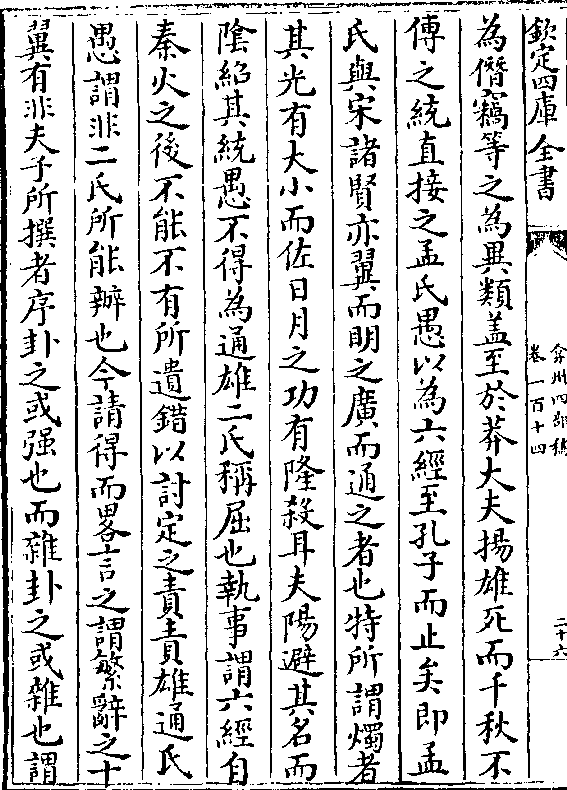 欽定四庫全書
弇州四部稿
卷一百十四
二十六
為僭竊等之為異類盖至於莽大夫揚雄死而千秋不
傳之統直接之孟氏愚以為六經至孔子而止矣即孟
氏與宋諸賢亦翼而明之廣而通之者也特所謂燭者
其光有大小而佐日月之功有隆殺耳夫陽避其名而
陰紹其統愚不得為通雄二氏稱屈也執事謂六經自
秦火之後不能不有所遺錯以討定之責責雄通氏
愚謂非二氏所能辦也今請得而畧言之謂繫辭之十
翼有非夫子所撰者序卦之或强也而雜卦之或雜也謂